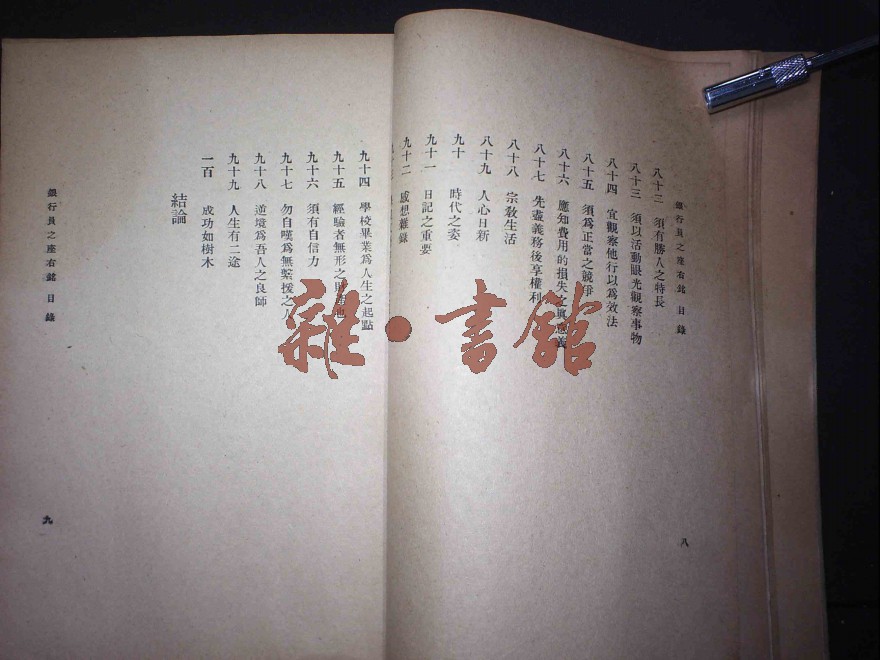 銀行員之座右銘 目錄
八十二 須有勝人之特長
八十三 須以活動眼光觀察事物
八十四 宜觀察他行以爲效法
八十五 須爲正當之競爭
八十六 應知費用的損失之眞意義
八十七 先盡義務後享權利
八十八 宗教生活
八十九 人心日新
九十 時代之姿
九十一 日記之重要
九十二 感想雜錄
八
九十四 學校畢業爲人生之起點
九十五 經驗者無形之財產也
九十六 須有自信力
九十七 勿自嘆爲無繫援之人
九十八 逆境爲吾人之良師
九十九 人生有二途
一百 成功如樹木
結論
銀行員之座右銘 目錄
九
雜·書館